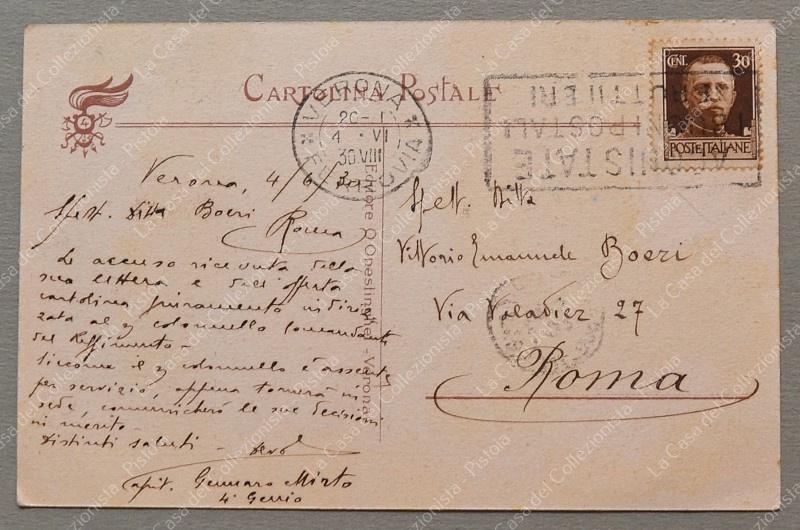 CARTOLINA POSTALE
VERONA
FERROVIA
30 VIII
CENT. 30
POSTE ITALIANE
ACQUISTATE
POSTALI
FRUTTIFERI
4
Verona, 4/6/30
Spett. Ditta Boeri
Roma
Le accuso ricevuta della
sua lettera e dell'offerta
cartolina giuramento indiriz
zata al Sig. colonnello Comandante
del Reggimento -
Siccome il Sig. colonnello è assente
per servizio, appena tornerà in
sede, comunicherò le sue decisioni
in merito -
Distinti saluti -
Capit. Gennaro Mirto
4° Genio
Editore Q. Onestinghel - Verona
Spett. Ditta
Vittorio Emanuele Boeri
Via Valadier 27
Roma
La Casa del Collezionista - Pistoia